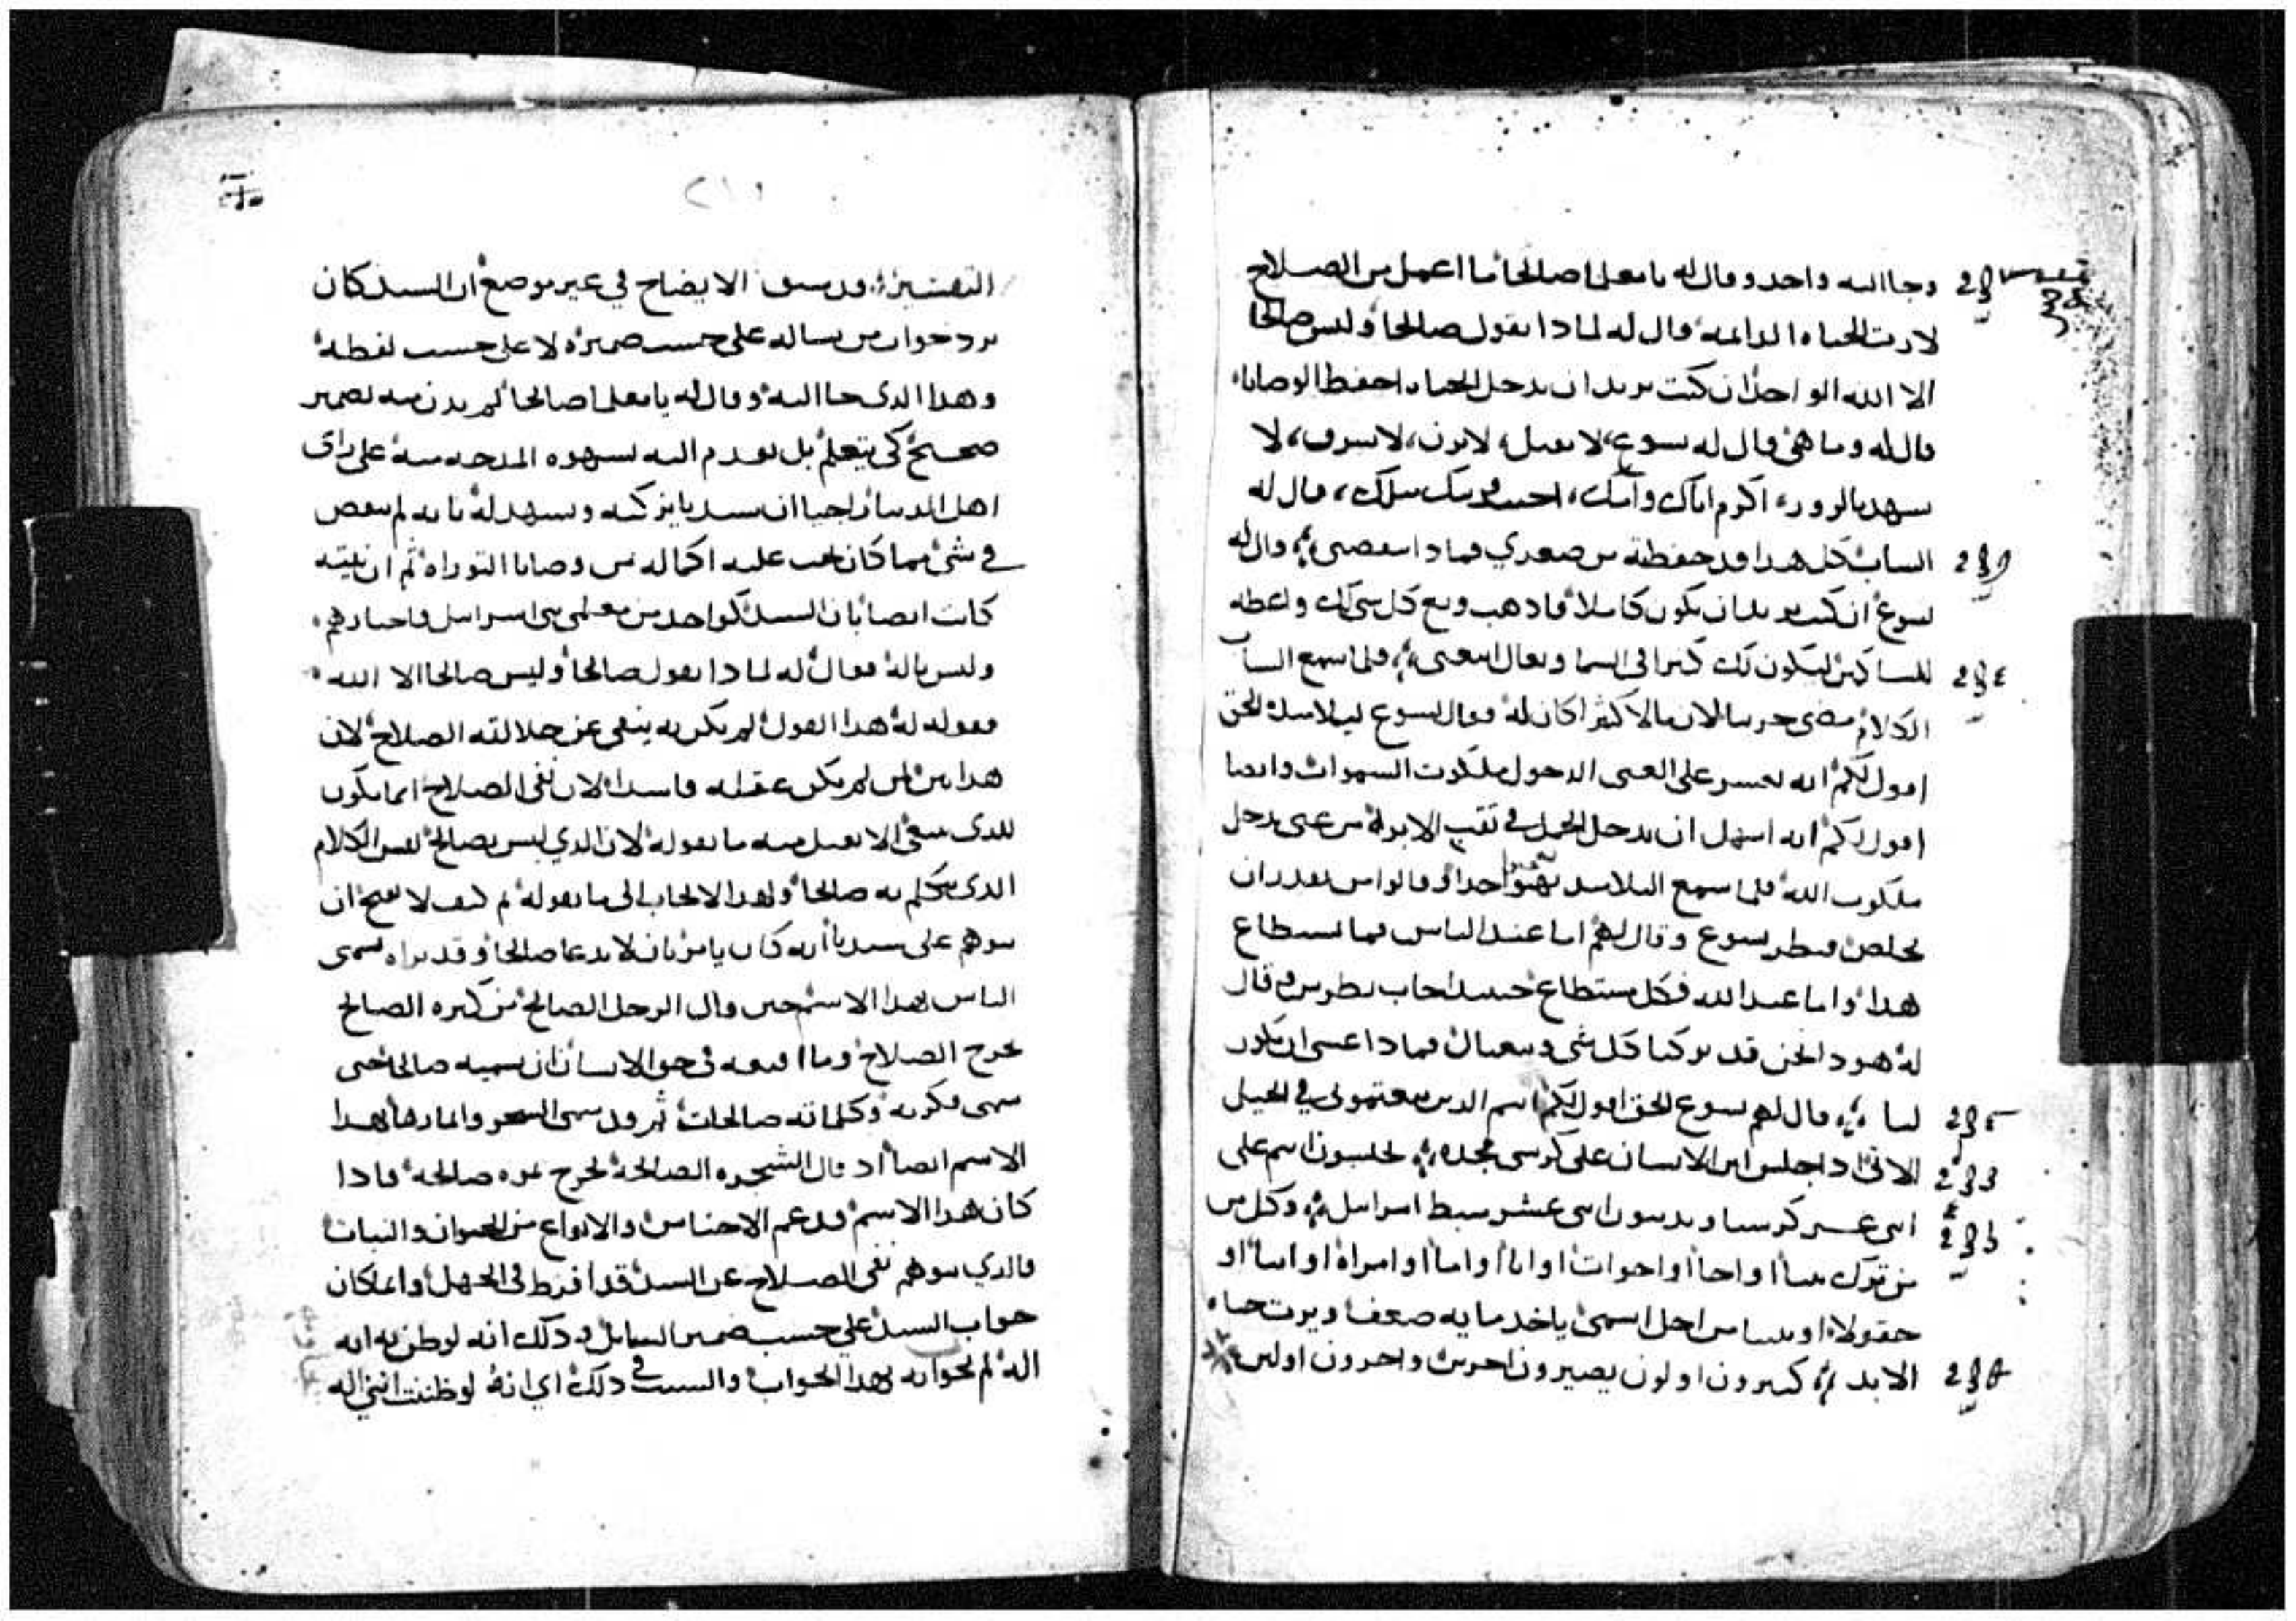 وجا اليه واحد وقال له يا معلما صالحا ما اعمل من الصلاح
لارث الحياه الدايمه قال له لماذا تقول صالحا وليس صالحا
الا الله الواحد ان كنت تريد ان تدخل الحياه احفظ الوصايا
قال له وما هي قال له يسوع لا تقتل، لا تزن، لا تسرق، لا
تشهد بالزور، اكرم اباك وامك، احبب قريبك مثلك، قال له
الشاب كل هذا قد حفظته من صغري فماذا ينقصني قال له
يسوع ان كنت تريد ان تكون كاملا فاذهب وبع كل شي لك واعطه
للمساكين ليكون لك كنزا في السما وتعال اتبعني فلما سمع الشاب
الكلام مضى حزينا لان مالا كثيرا كان له فقال يسوع لتلاميذه الحق
اقول لكم انه يعسر على الغني الدخول ملكوت السموات وايضا
اقول لكم انه اسهل ان يدخل الجمل في ثقب الابره من غني يدخل
ملكوت الله فلما سمع التلاميذ بهتوا جدا وقالوا من يقدر ان
يخلص فنظر يسوع وقال لهم اما عند الناس فما يستطاع
هذا واما عند الله فكل مستطاع حينيذ اجاب بطرس وقال
له هوذا نحن قد تركنا كل شي وتبعناك فماذا عسى ان يكون
لنا قال لهم يسوع الحق اقول لكم انتم الذين تبعتموني في الجيل
الاتي اذا جلس ابن الانسان على كرسي مجده تجلسون انتم على
اثني عشر كرسيا وتدينون اثني عشر سبط اسراييل وكل من
من ترك بيتا او اخا او اخوات او ابا او اما او امراه او ابنا او
حقولا او بيتا من اجل اسمي ياخذ مايه ضعف ويرث حياه
الابد كثيرون اولون يصيرون اخرين واخرون اولين
التفسير قد سبق الايضاح في غير موضع ان السيد كان
يرد جواب من يساله على حسب ضميره لا على حسب لفظه
وهذا الذي جا اليه وقال له يا معلما صالحا لم يدن منه بضمير
صحيح كي يتعلم بل تقدم اليه لشهوه المدحه منه على راى
اهل الدنيا راجيا ان سيدنا يزكيه ويشهد له بانه لم ينقص
في شئ مما كان يجب عليه اكماله من وصايا التوراه ثم ان نيته
كانت ايضا بان السيد كواحد من معلمي بني اسراييل واحبارهم
وليس باله فقال له لماذا تقول صالحا وليس صالحا الا الله
فقوله له هذا القول لم يكن به ينفي عن جلالته الصلاح لان
هذا بين لمن لم يكن عقله فاسدا لان نفي الصلاح انما يكون
للذي ينبغي الا يقبل منه ما يقوله لان الذي ليس بصالح ليس الكلام
الذي يتكلم به صالحا ولهذا لا يجاب الى ما يقوله ثم كيف لا يقبح ان
يتوهم على سيدنا انه كان يامر بان لا يدعا صالحا وقد نراه يسمى
الناس بهذا الاسم حين قال الرجل الصالح من كنزه الصالح
يخرج الصلاح وما اقنعه في حق الانسان ان يسميه صالحا حتى
سمى فكرته وكلماته صالحات ثم قد سمى الشجر واثمارها بهذا
الاسم ايضا اذ قال الشجره الصالحه تخرج ثمره صالحه فاذا
كان هذا الاسم قد عم الاجناس والانواع من الحيوان والنبات
فالذي يتوهم نفي الصلاح عن السيد قد افرط في الجهل وانما كان
جواب السيد على حسب ضمير السايل وذلك انه لو ظن به انه
اله لم يجوابه بهذا الجواب والسبب في ذلك اي انه لو ظننت انني اله